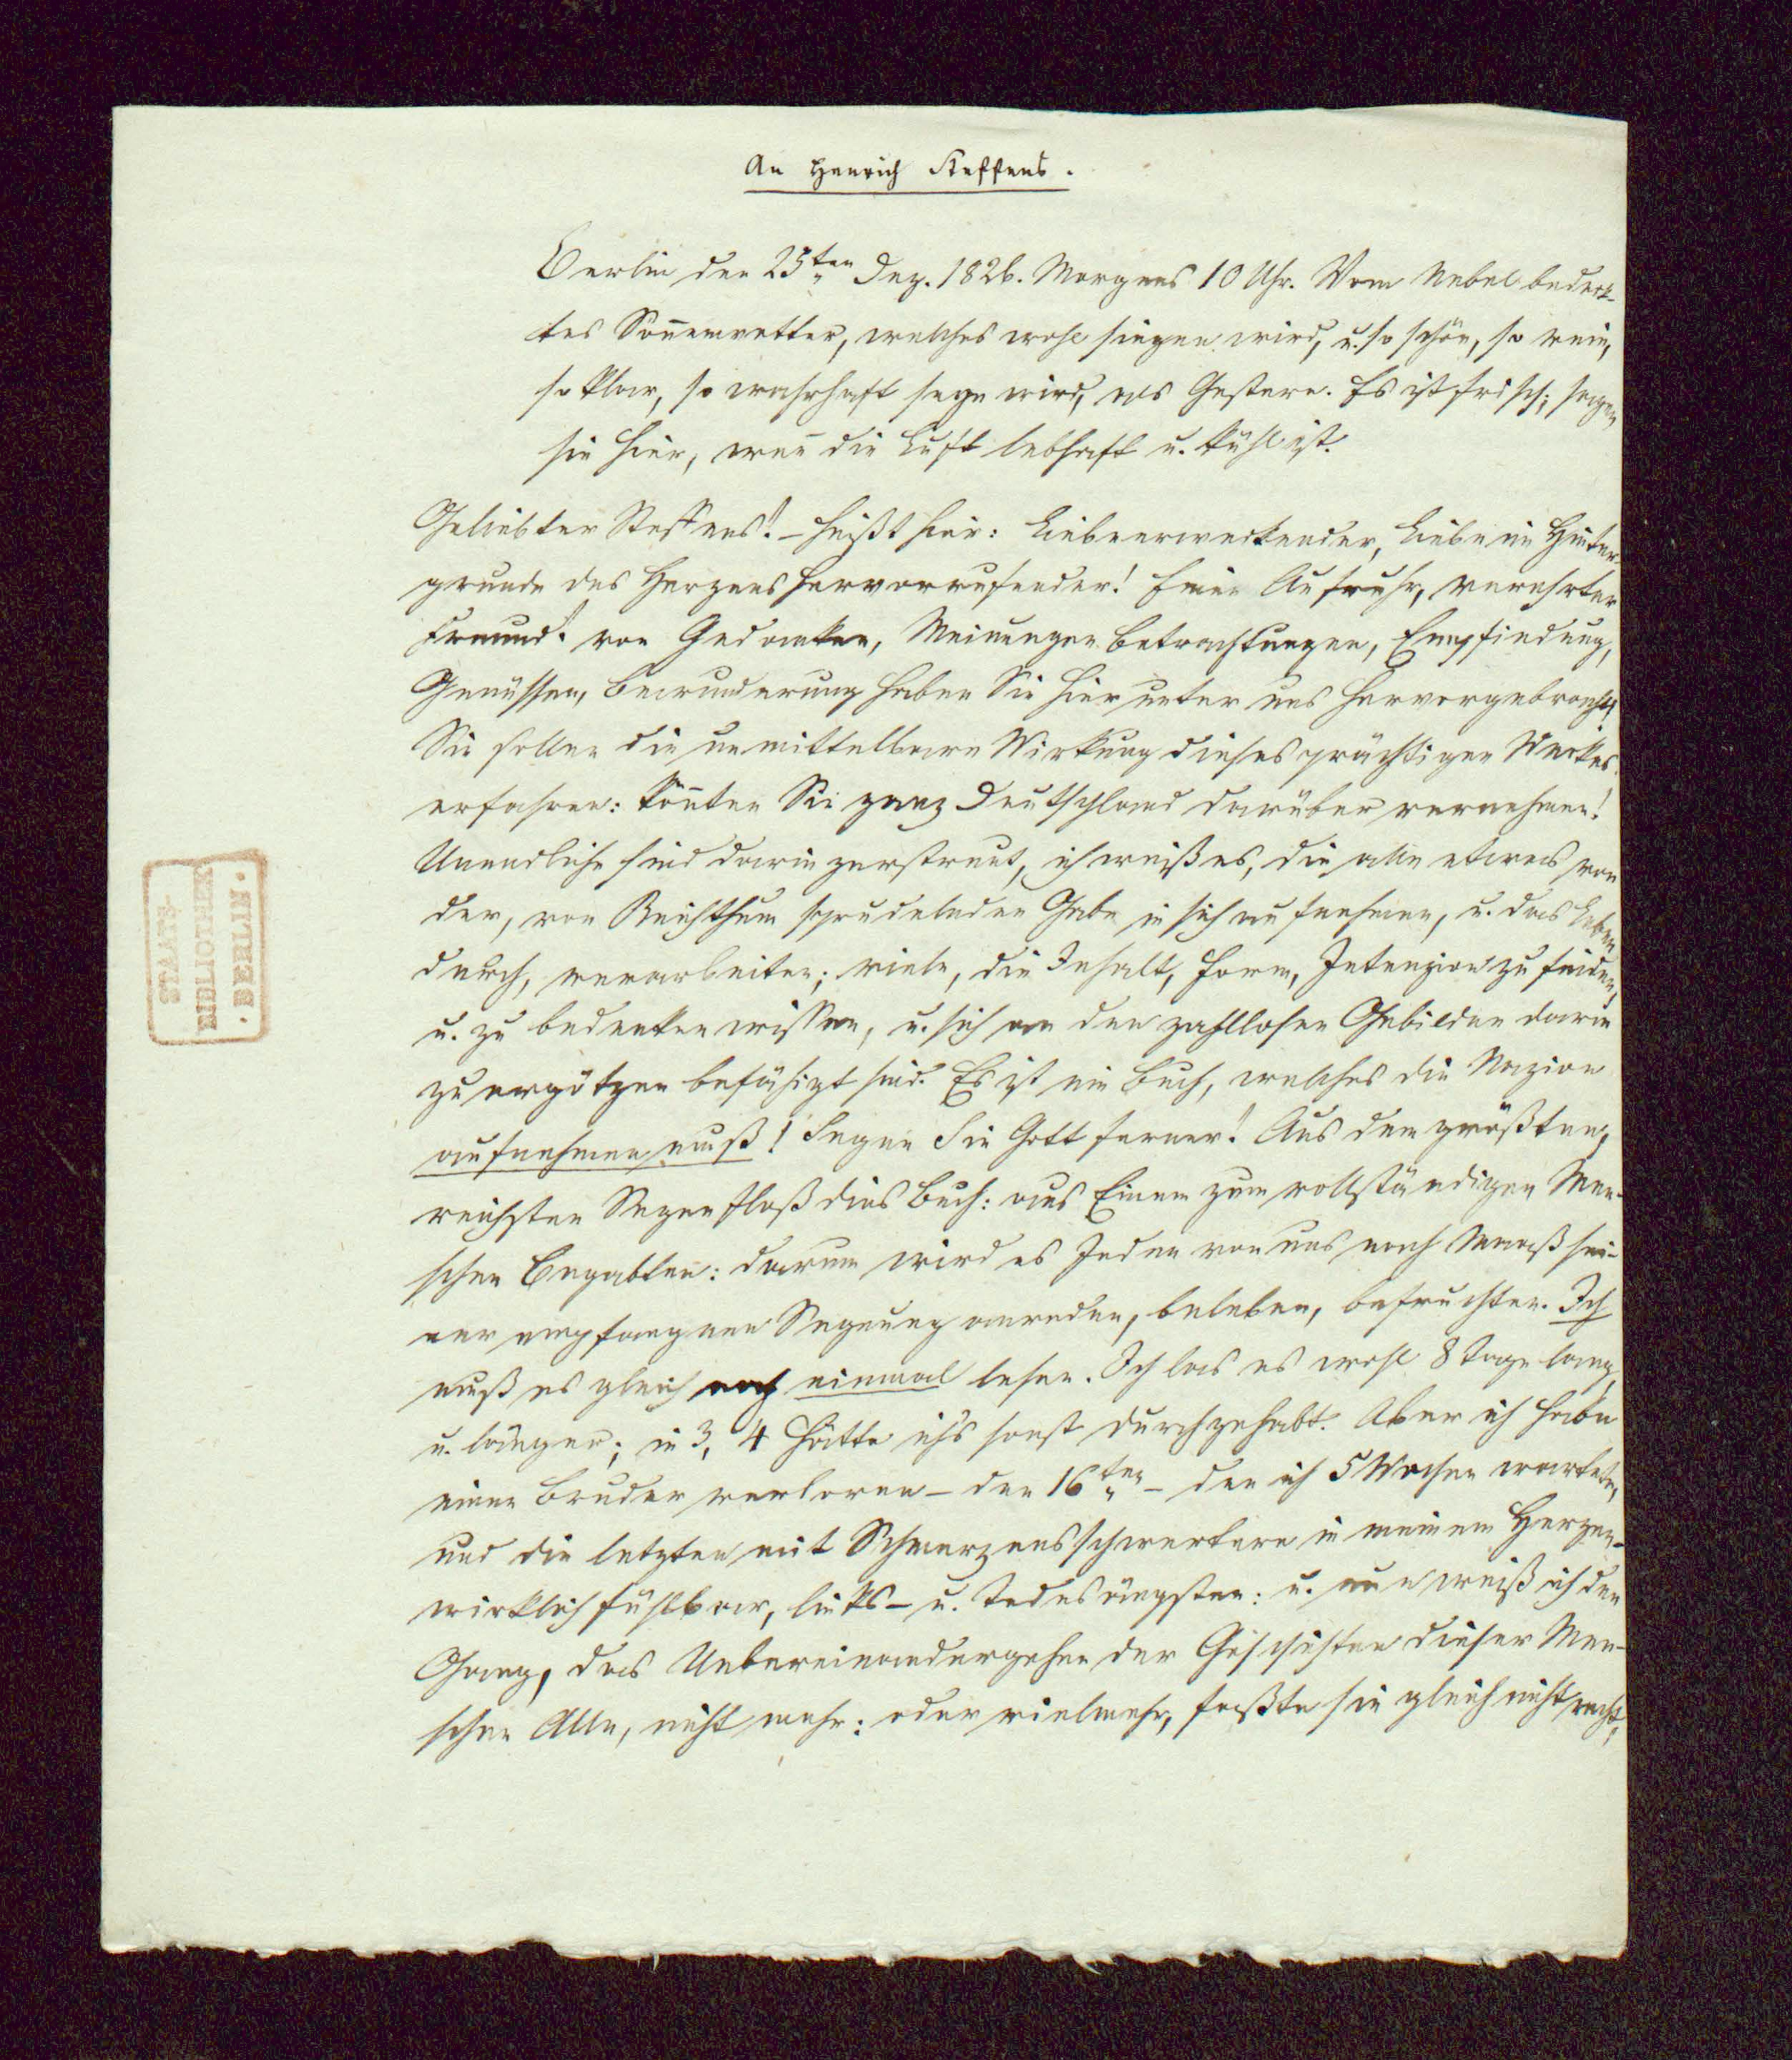 An Henrich Steffens.
Berlin den 25ten Dez. 1826. Morgens 10 Uhr. Vom Nebel bedeck-
tes Soñenwetter, welches wohl siegen wird, u. so schön, so rein,
so klar, so wahrhaft seyn wird, als Gestern. Es ist frisch; sagen
sie hier, weñ die Luft lebhaft u. kühl ist.
Geliebter Steffens! – heißt hier: Liebeerweckender, Liebe im Hinter-
grunde des Herzens hervorrufender! Einen Aufruhr, verehrter
Freund! von Gedanken, Meinungen Betrachtungen, Empfindung,
Genüssen, Bewunderung haben Sie hier unter uns hervorgebracht!
Sie sollen die unmittelbare Wirkung dieses prächtigen Werkes
erfahren: köñten Sie ganz Deutschland darüber vernehmen!
Unendliche sind darin zerstreut, ich weiß es, die alle etwas von
der, von Reichthum sprudelnden Gabe in sich aufnehmen, u. das Leben
durch, verarbeiten; viele, die Inhalt, Form, Intenzion zu finden,
u. zu bedenken wissen, u. sich an den zahllosen Gebilden darin
zu ergötzen befähigt sind. Es ist ein Buch, welches die Nazion
aufnehmen muß! Segne Sie Gott ferner! Aus dem größten,
reichsten Segen floß dies Buch: aus Einem zum vollständigen Men-
schen Begabten: darum wird es Jeden von uns nach Maaß sei-
ner empfangenen Segnung anreden, beleben, befruchten. Ich
muß es gleich noch einmal lesen. Ich las es wohl 8 Tage lang,
u. länger; in 3, 4 hätte ich's sonst durchgehabt. Aber ich habe
einen Bruder verloren – den 16ten – den ich 5 Wochen wartete,
und die letzten mit Schmerzensschwertern in meinem Herzen –
wirklich fühlbar, links – u. Todesängsten: u. nun weiß ich den
Gang, das Uebereinandergehen der Geschichten dieser Men-
schen Alle, nicht mehr: oder vielmehr, faßte sie gleich nicht recht;
STAATS-
BIBLIOTHEK
· BERLIN ·